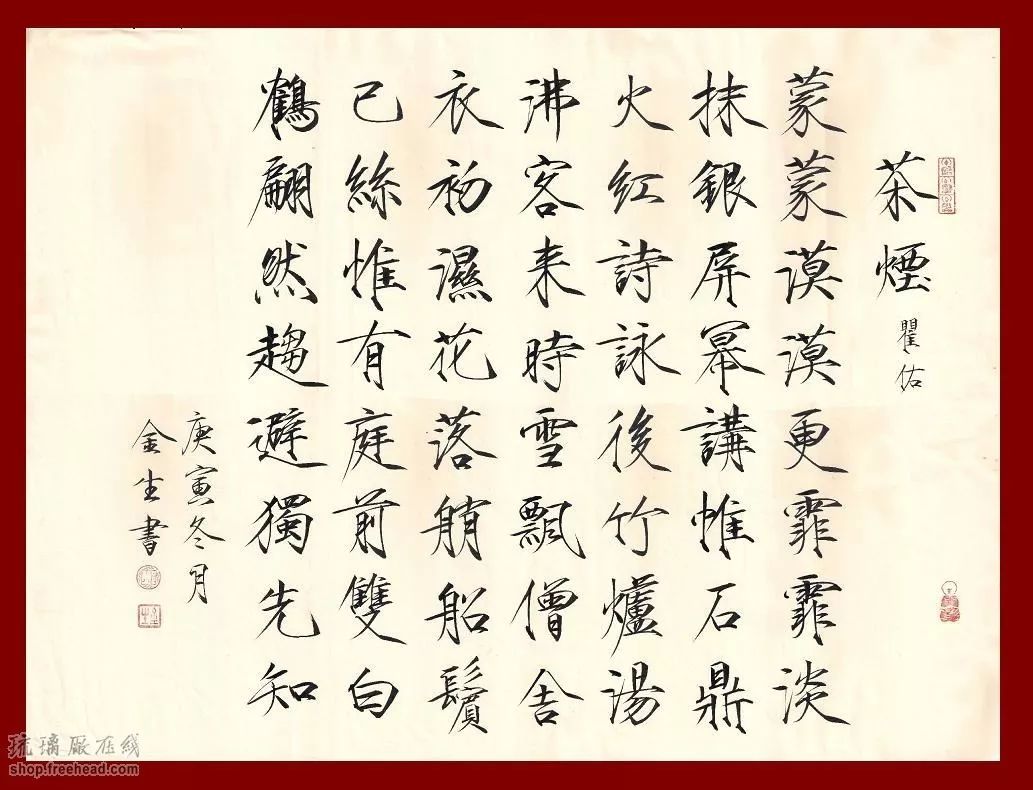 茶煙
瞿佑
蒙蒙漠漠更霏霏淡
抹銀屏冪講帷石鼎
火紅詩詠後竹爐湯
沸客来時雪飄僧舍
衣初濕花落艄船鬢
已絲惟有庭前雙白
鶴翩然趨避獨先知
庚寅冬月
金生書
琉璃厰在线
shop.freehead.com